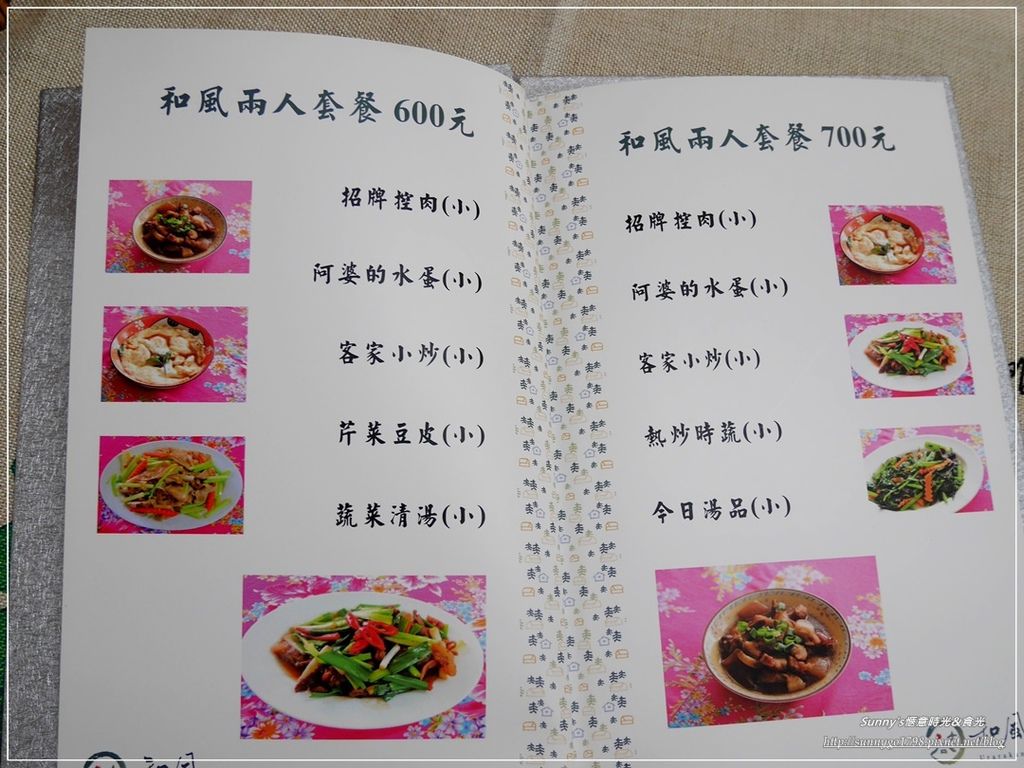 和風兩人套餐 600元
招牌控肉(小)
阿婆的水蛋(小)
客家小炒(小)
芹菜豆皮(小)
蔬菜清湯(小)
和風兩人套餐 700元
招牌控肉(小)
阿婆的水蛋(小)
客家小炒(小)
熱炒時蔬(小)
今日湯品(小)
和風
Sunny's愜意時光&食光
http://sunnygo1798.pixnet.net/blog